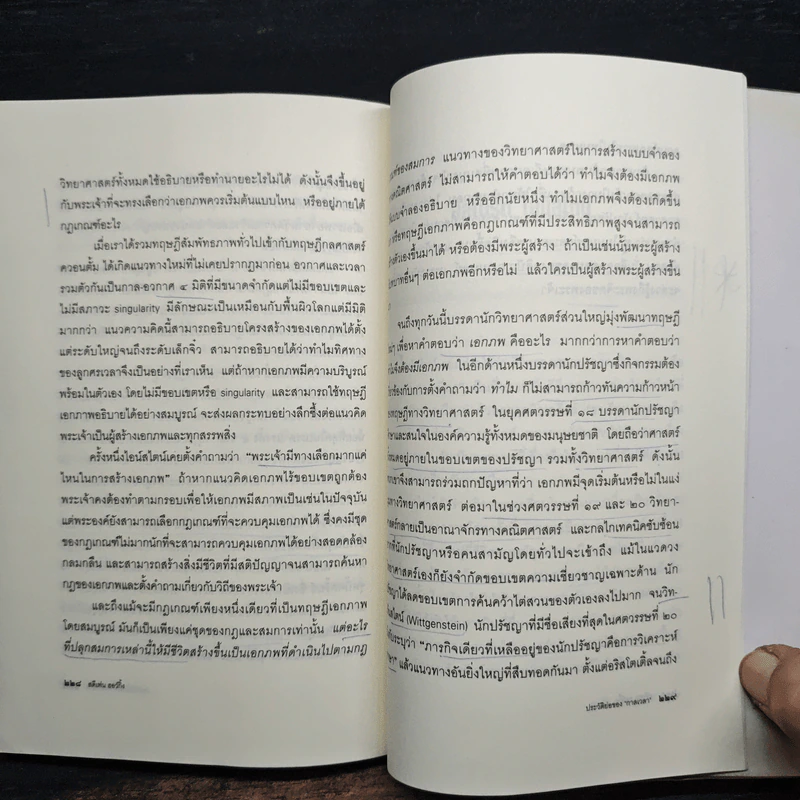 วิทยาศาสตร์ทั้งหมดใช้อธิบายหรือทำนายอะไรไม่ได้ ดังนั้นจึงขึ้นอยู่
กับพระเจ้าที่จะทรงเลือกว่าเอกภพควรเริ่มต้นแบบไหน หรืออยู่ภายใต้
กฎเกณฑ์อะไร
เมื่อเราได้รวมทฤษฎีสัมพัทธภาพทั่วไปเข้ากับทฤษฎีกลศาสตร์
ควอนตั้ม ได้เกิดแนวทางใหม่ที่ไม่เคยปรากฏมาก่อน อวกาศและเวลา
รวมตัวกันเป็นกาล-อวกาศ ๔ มิติที่มีขนาดจำกัดแต่ไม่มีขอบเขตและ
ไม่มีสภาวะ singularity มีลักษณะเป็นเหมือนกับพื้นผิวโลกแต่มีมิติ
มากกว่า แนวความคิดนี้สามารถอธิบายโครงสร้างของเอกภพได้ตั้ง
แต่ระดับใหญ่จนถึงระดับเล็กจิ๋ว สามารถอธิบายได้ว่าทำไมทิศทาง
ของลูกศรเวลาจึงเป็นอย่างที่เราเห็น แต่ถ้าหากเอกภพมีความบริบูรณ์
พร้อมในตัวเอง โดยไม่มีขอบเขตหรือ singularity และสามารถใช้ทฤษฎี
เอกภาพอธิบายได้อย่างสมบูรณ์ จะส่งผลกระทบอย่างลึกซึ้งต่อแนวคิด
พระเจ้าเป็นผู้สร้างเอกภพและทุกสรรพสิ่ง
ครั้งหนึ่งไอน์สไตน์เคยตั้งคำถามว่า "พระเจ้ามีทางเลือกมากแค่
ไหนในการสร้างเอกภพ" ถ้าหากแนวคิดเอกภพไร้ขอบเขตถูกต้อง
พระเจ้าคงต้องทำตามกรอบเพื่อให้เอกภพมีสภาพเป็นเช่นในปัจจุบัน
แต่พระองค์ยังสามารถเลือกกฎเกณฑ์ที่จะควบคุมเอกภพได้ ซึ่งคงมีชุด
ของกฎเกณฑ์ไม่มากนักที่จะสามารถควบคุมเอกภพได้อย่างสอดคล้อง
กลมกลืน และสามารถสร้างสิ่งมีชีวิตที่มีสติปัญญาจนสามารถค้นหา
กฎของเอกภพและตั้งคำถามเกี่ยวกับวิถีของพระเจ้า
และถึงแม้จะมีกฎเกณฑ์เพียงหนึ่งเดียวที่เป็นทฤษฎีเอกภาพ
โดยสมบูรณ์ มันก็เป็นเพียงแค่ชุดของกฎและสมการเท่านั้น แต่อะไร
ที่ปลุกสมการเหล่านี้ให้มีชีวิตสร้างขึ้นเป็นเอกภพที่ดำเนินไปตามกฎ
๒๒๘ สตีเฟน ฮอว์กิ้ง
ของสมการ แนวทางของวิทยาศาสตร์ในการสร้างแบบจำลอง
คณิตศาสตร์ ไม่สามารถให้คำตอบได้ว่า ทำไมจึงต้องมีเอกภพ
แบบจำลองอธิบาย หรืออีกนัยหนึ่ง ทำไมเอกภพจึงต้องเกิดขึ้น
หรือทฤษฎีเอกภาพคือกฎเกณฑ์ที่มีประสิทธิภาพสูงจนสามารถ
ตัวเองขึ้นมาได้ หรือต้องมีพระผู้สร้าง ถ้าเป็นเช่นนั้นพระผู้สร้าง
บทบาทอื่นๆ ต่อเอกภพอีกหรือไม่ แล้วใครเป็นผู้สร้างพระผู้สร้างขึ้น
จนถึงทุกวันนี้บรรดานักวิทยาศาสตร์ส่วนใหญ่มุ่งพัฒนาทฤษฎี
เพื่อหาคำตอบว่า เอกภพ คืออะไร มากกว่าการหาคำตอบว่า
จึงต้องมีเอกภพ ในอีกด้านหนึ่งบรรดานักปรัชญาซึ่งกิจกรรมต้อง
เกี่ยวข้องกับการตั้งคำถามว่า ทำไม ก็ไม่สามารถก้าวทันความก้าวหน้า
ทฤษฎีทางวิทยาศาสตร์ ในยุคศตวรรษที่ ๑๘ บรรดานักปรัชญา
และสนใจในองค์ความรู้ทั้งหมดของมนุษยชาติ โดยถือว่าศาสตร์
อยู่ภายในขอบเขตของปรัชญา รวมทั้งวิทยาศาสตร์ ดังนั้น
เขาจึงสามารถร่วมถกปัญหาที่ว่า เอกภพมีจุดเริ่มต้นหรือไม่ในแง่
ทางวิทยาศาสตร์ ต่อมาในช่วงศตวรรษที่ ๑๙ และ ๒๐ วิทยา-
ศาสตร์กลายเป็นอาณาจักรทางคณิตศาสตร์ และกลไกเทคนิคซับซ้อน
ที่นักปรัชญาหรือคนสามัญโดยทั่วไปจะเข้าถึง แม้ในแวดวง
วิทยาศาสตร์เองก็ยังจำกัดขอบเขตความเชี่ยวชาญเฉพาะด้าน นัก
ปรัชญาได้ลดขอบเขตการค้นคว้าไต่สวนของตัวเองลงไปมาก จนวิท-
(Wittgenstein) นักปรัชญาที่มีชื่อเสียงที่สุดในศตวรรษที่ ๒๐
ระบุว่า "ภารกิจเดียวที่เหลืออยู่ของนักปรัชญาคือการวิเคราะห์
แล้วแนวทางอันยิ่งใหญ่ที่สืบทอดกันมา ตั้งแต่อริสโตเติ้ลจนถึง
ประวัติย่อของ "กาลเวลา" ๒๒๙